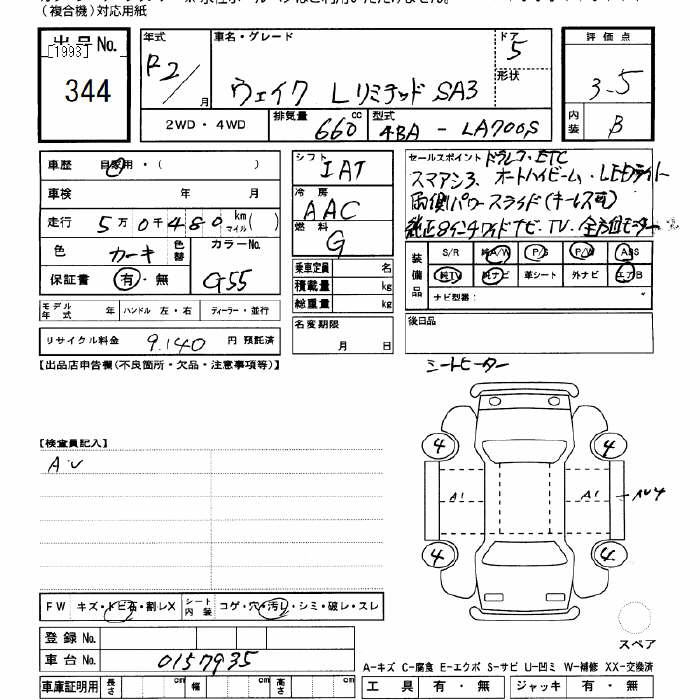 （複合機）対応用紙
出品No.
[1993]
344
年式
R2/
月
車名・グレード
ウェイク LリミテッドSA3
ドア
5
形状
評価点
3.5
内装
B
2WD・4WD
排気量
660
cc
型式
4BA - LA700S
車歴 自家用・（ ）
車検 年 月
走行 5万0千480 km マイル( )
色 カーキ 色替
カラーNo.
G55
保証書 有・無
シフト
IAT
冷房
AAC
燃料
G
乗車定員 名
積載量 kg
総重量 kg
セールスポイント ドラレコ・ETC
スマアシ3、オートハイビーム・LEDライト
両側パワースライド(キーレス可)
純正8インチワイドナビ・TV・全方位モニター
装備品
S/R 純A/W P/S P/W ABS
純TV 純ナビ 革シート 外ナビ エアB
ナビ型番：
モデル年式 年 ハンドル 左・右 ディーラー・並行
名変期限
月 日
後日品
リサイクル料金 9.140 円 預託済
シートヒーター
【出品店申告欄(不良箇所・欠品・注意事項等)】
【検査員記入】
A・U
4
4
A1
A1
AU4
4
4
スペア
FW キズ・トビ石・割レX シート内装 コゲ・穴・汚レ・シミ・破レ・スレ
登録No.
車台No. 0157935
A-キズ C-腐食 E-エクボ S-サビ U-凹ミ W-補修 XX-交換済
車庫証明用 長さ cm 幅 cm 高さ cm
工具 有・無 ジャッキ 有・無